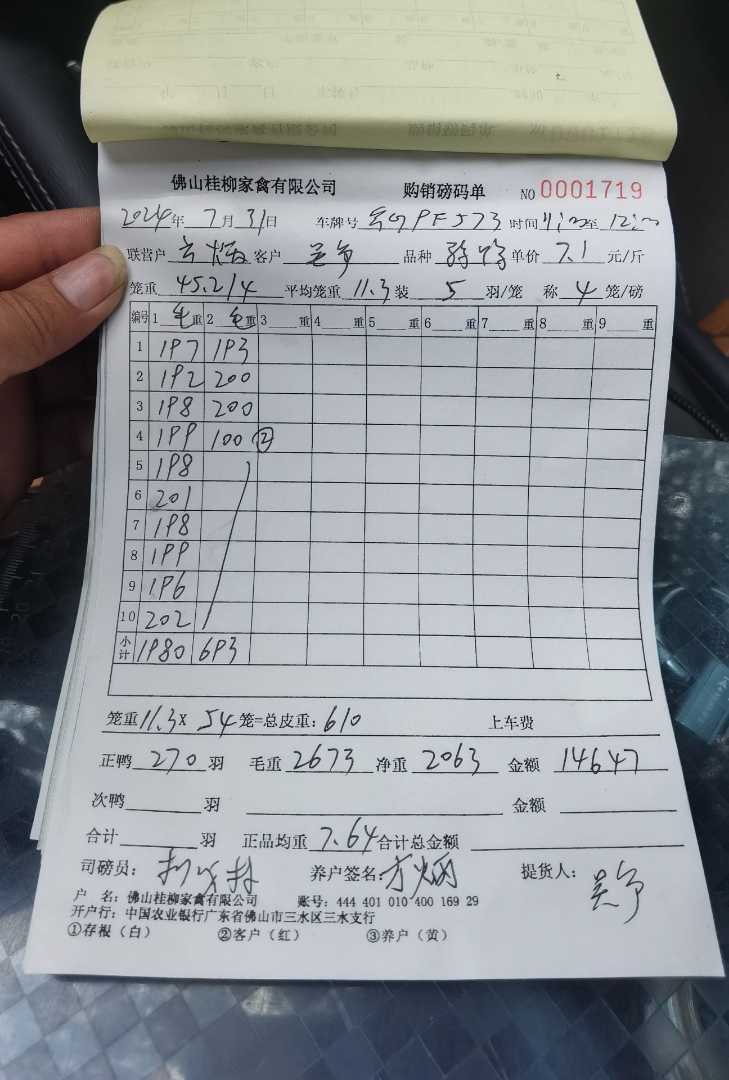 佛山桂柳家禽有限公司 购销磅码单 NO 0001719
2024年 7月 31日 车牌号 PF573 时间 至
联营户 客户 吴争 品种 单价 7.1 元/斤
笼重 45.2/4 平均笼重 11.3 装 5 羽/笼 称 4 笼/磅
编号 1 毛重 2 毛重 3 重 4 重 5 重 6 重 7 重 8 重 9 重
1 197 193
2 192 200
3 198 200
4 199 100 ②
5 198
6 201
7 198
8 199
9 196
10 202
小计 1980 693
笼重 11.3 x 54 笼=总皮重: 610 上车费
正鸭 270 羽 毛重 2673 净重 2063 金额 14647
次鸭 羽 金额
合计 羽 正品均重 7.64 合计总金额
司磅员: 养户签名: 方炳 提货人: 吴争
户 名: 佛山桂柳家禽有限公司 账号: 444 401 010 400 169 29
开户行: 中国农业银行广东省佛山市三水区三水支行
①存根(白) ②客户(红) ③养户(黄)